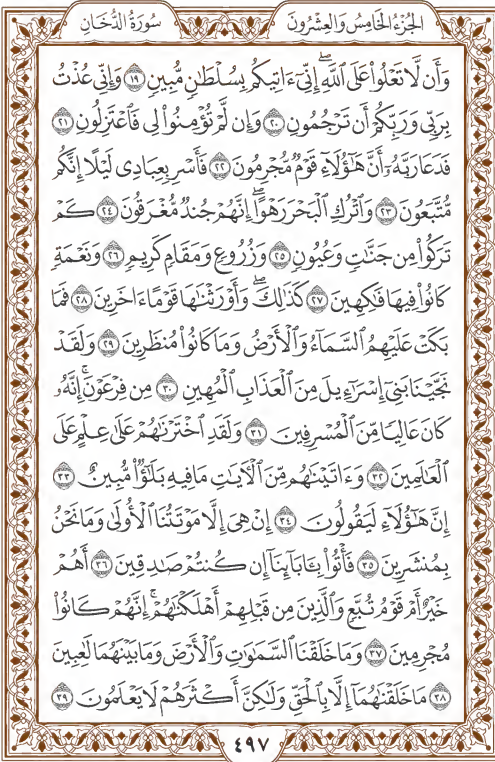 الجُزْءُ الخَامِسُ وَالعِشْرُونَ سُورَةُ الدُّخَانِ
وَأَن لَّا تَعْلُوا۟ عَلَى ٱللَّهِ ۖ إِنِّىٓ ءَاتِيكُم بِسُلْطَٰنٍ مُّبِينٍ ١٩ وَإِنِّى عُذْتُ
بِرَبِّى وَرَبِّكُمْ أَن تَرْجُمُونِ ٢٠ وَإِن لَّمْ تُؤْمِنُوا۟ لِى فَٱعْتَزِلُونِ ٢١
فَدَعَا رَبَّهُۥٓ أَنَّ هَٰٓؤُلَآءِ قَوْمٌ مُّجْرِمُونَ ٢٢ فَأَسْرِ بِعِبَادِى لَيْلًا إِنَّكُم
مُّتَّبَعُونَ ٢٣ وَٱتْرُكِ ٱلْبَحْرَ رَهْوًا ۖ إِنَّهُمْ جُندٌ مُّغْرَقُونَ ٢٤ كَمْ
تَرَكُوا۟ مِن جَنَّٰتٍ وَعُيُونٍ ٢٥ وَزُرُوعٍ وَمَقَامٍ كَرِيمٍ ٢٦ وَنَعْمَةٍ
كَانُوا۟ فِيهَا فَٰكِهِينَ ٢٧ كَذَٰلِكَ ۖ وَأَوْرَثْنَٰهَا قَوْمًا ءَاخَرِينَ ٢٨ فَمَا
بَكَتْ عَلَيْهِمُ ٱلسَّمَآءُ وَٱلْأَرْضُ وَمَا كَانُوا۟ مُنظَرِينَ ٢٩ وَلَقَدْ
نَجَّيْنَا بَنِىٓ إِسْرَٰٓءِيلَ مِنَ ٱلْعَذَابِ ٱلْمُهِينِ ٣٠ مِن فِرْعَوْنَ ۚ إِنَّهُۥ
كَانَ عَالِيًا مِّنَ ٱلْمُسْرِفِينَ ٣١ وَلَقَدِ ٱخْتَرْنَٰهُمْ عَلَىٰ عِلْمٍ عَلَى
ٱلْعَٰلَمِينَ ٣٢ وَءَاتَيْنَٰهُم مِّنَ ٱلْـَٔايَٰتِ مَا فِيهِ بَلَٰٓؤٌا۟ مُّبِينٌ ٣٣
إِنَّ هَٰٓؤُلَآءِ لَيَقُولُونَ ٣٤ إِنْ هِىَ إِلَّا مَوْتَتُنَا ٱلْأُولَىٰ وَمَا نَحْنُ
بِمُنشَرِينَ ٣٥ فَأْتُوا۟ بِـَٔابَآئِنَآ إِن كُنتُمْ صَٰدِقِينَ ٣٦ أَهُمْ
خَيْرٌ أَمْ قَوْمُ تُبَّعٍ وَٱلَّذِينَ مِن قَبْلِهِمْ ۚ أَهْلَكْنَٰهُمْ ۖ إِنَّهُمْ كَانُوا۟
مُجْرِمِينَ ٣٧ وَمَا خَلَقْنَا ٱلسَّمَٰوَٰتِ وَٱلْأَرْضَ وَمَا بَيْنَهُمَا لَٰعِبِينَ
٣٨ مَا خَلَقْنَٰهُمَآ إِلَّا بِٱلْحَقِّ وَلَٰكِنَّ أَكْثَرَهُمْ لَا يَعْلَمُونَ ٣٩
٤٩٧